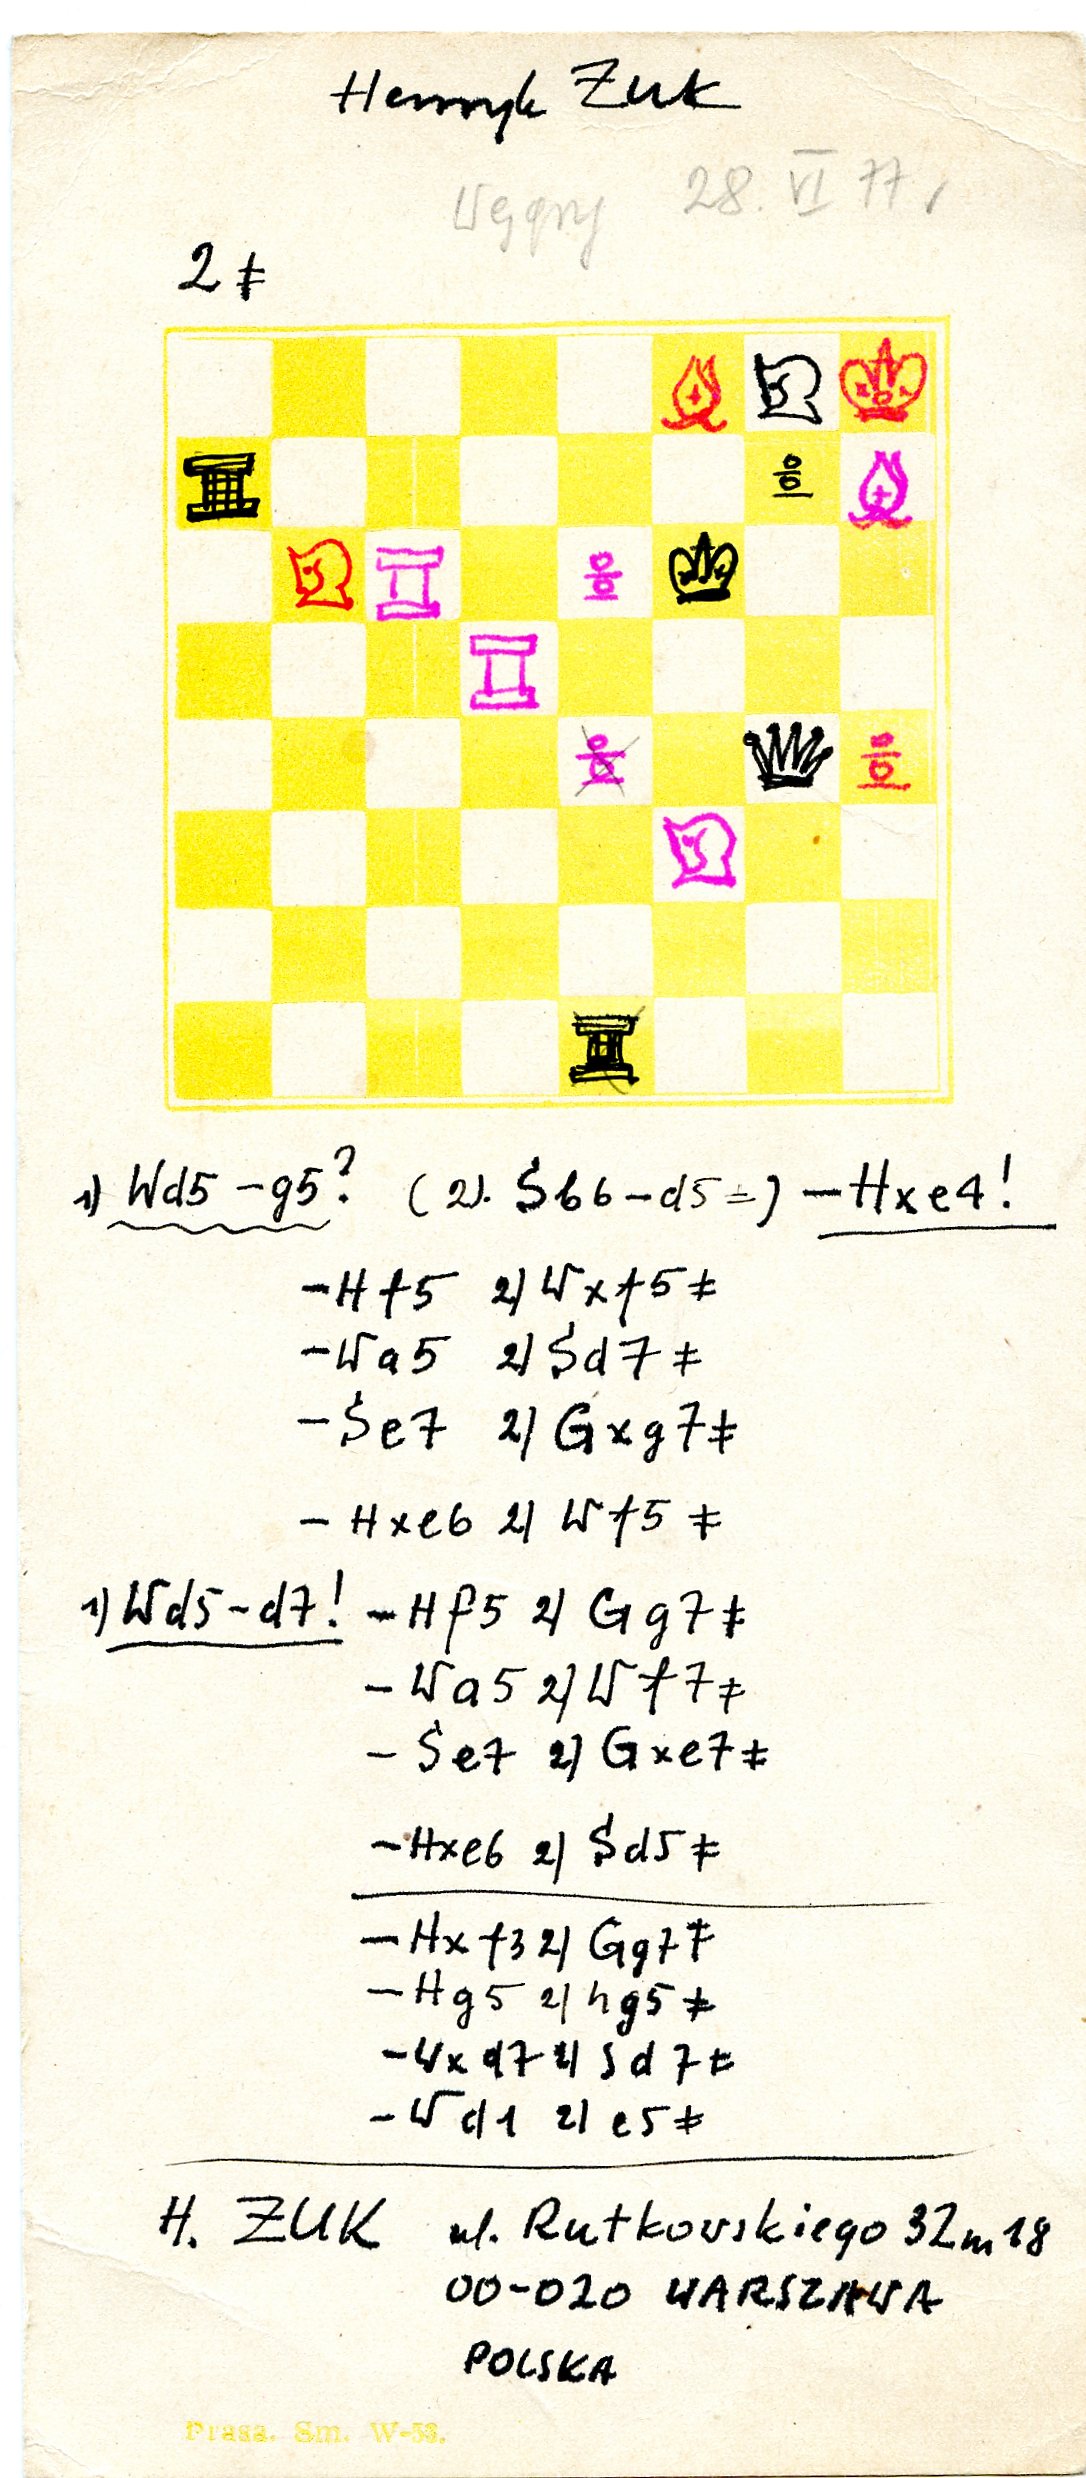 Henryk Zuk
Węgry 28. VI 77.
2 ‡
1) Wd5 - g5? (2). Sb6 - d5 =) - Hxe4!
- Hf5 2) Wxf5 ‡
- Wa5 2) Sd7 ‡
- Se7 2) Gxg7 ‡
- Hxe6 2) Wf5 ‡
1) Wd5 - d7! - Hf5 2) Gg7 ‡
- Wa5 2) Wf7 ‡
- Se7 2) Gxe7 ‡
- Hxe6 2) Sd5 ‡
- Hxf3 2) Gg7 ‡
- Hg5 2) hg5 ‡
- Wxd7 2) Sd7 ‡
- Wd1 2) e5 ‡
H. ZUK ul. Rutkowskiego 32 m 18
00-020 WARSZAWA
POLSKA
Prasa. Sm. W-53.